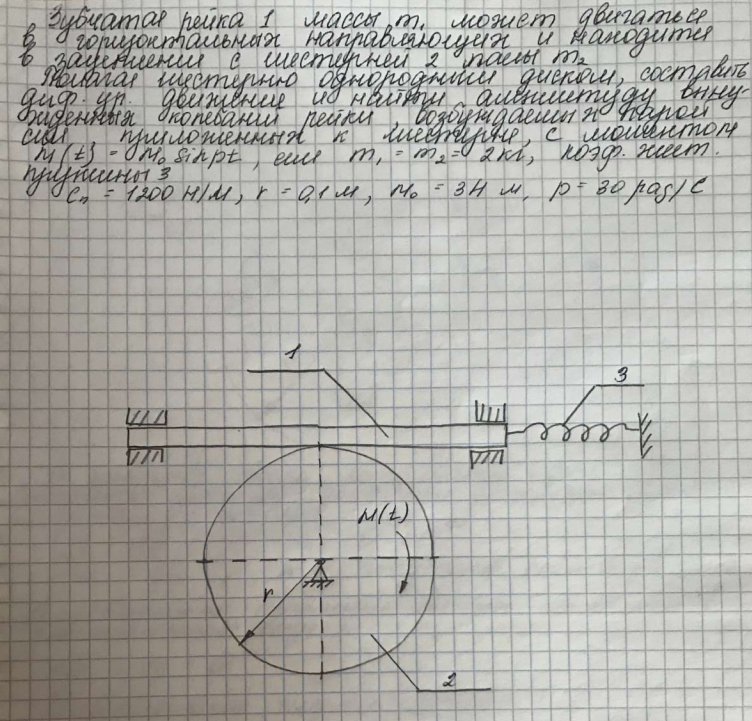 Зубчатая рейка 1 массы m₁ может двигаться
в горизонтальных направляющих и находится
в зацеплении с шестерней 2 массы m₂
Полагая шестерню однородным диском, составить
диф. ур. движения и найти амплитуду выну-
жденных колебаний рейки, возбуждаемых парой
сил приложенных к шестерне, с моментом
M(t) = M₀ sin pt, если m₁ = m₂ = 2кг, коэф. жест.
пружины 3
Cп = 1200 Н/м, r = 0,1 м, M₀ = 3Н м, p = 30 рад/с
1
3
M(t)
r
2